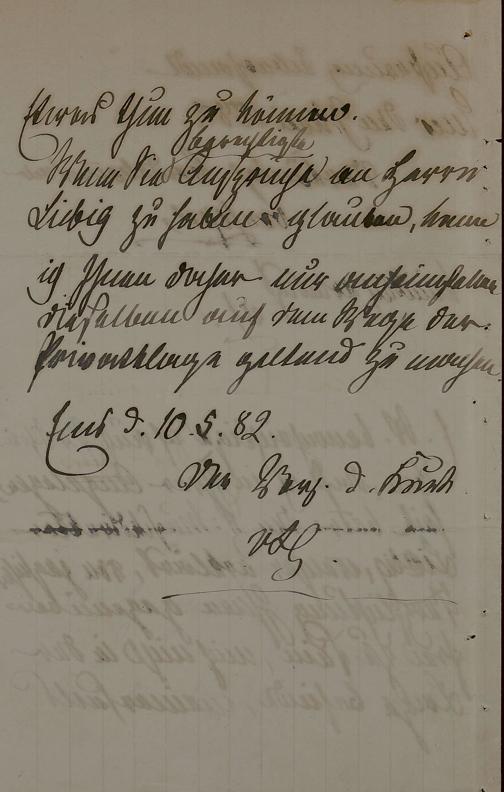 Etwas thun zu können.
berechtigte
Wenn Sie Ansprüche an Herrn
Liebig zu haben glauben, kann
ich Ihnen daher nur anheimgeben
dieselben auf dem Wege der
Privatklage geltend zu machen
Ems d. 10.5.82.
Der Vors. d.